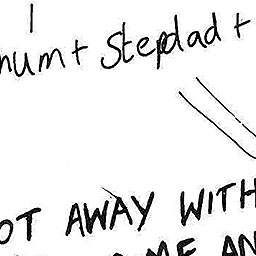 mum + Stepdad +
OT AWAY WITH
ME AN